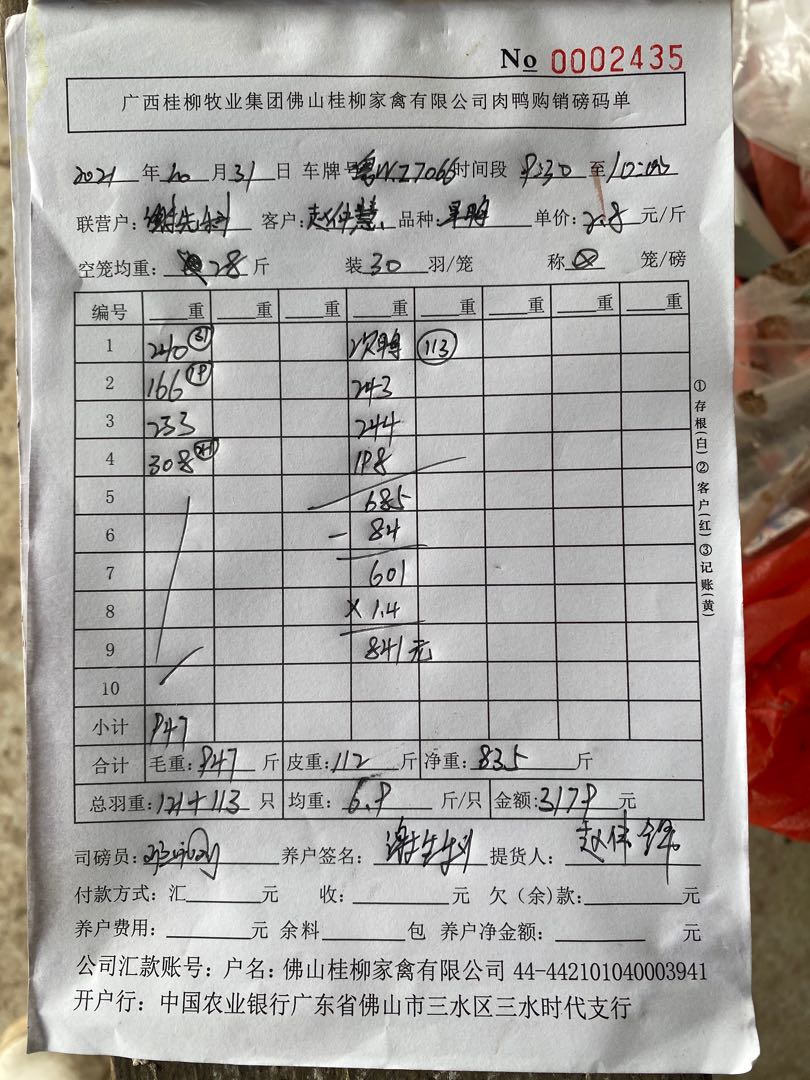 No 0002435
广西桂柳牧业集团佛山桂柳家禽有限公司肉鸭购销磅码单
2021年10月31日 车牌号粤W.Z7066时间段9:30至10:05
联营户: 客户:赵伟慧 品种:旱鸭 单价:2.8元/斤
空笼均重:28斤 装30羽/笼 称 笼/磅
编号 重 重 重 重 重 重 重 重
1 240 31 次鸭 113
2 166 19 243
3 233 244
4 308 198
5 685
6 -84
7 601
8 ×1.4
9 841元
10
小计 947
合计 毛重:947斤 皮重:112斤 净重:835斤
总羽重:121+113只 均重:6.9斤/只 金额:3179元
司磅员: 养户签名: 提货人:
付款方式:汇 元 收: 元 欠(余)款: 元
养户费用: 元 余料 包 养户净金额: 元
公司汇款账号:户名:佛山桂柳家禽有限公司 44-442101040003941
开户行:中国农业银行广东省佛山市三水区三水时代支行
①存根(白)②客户(红)③记账(黄)